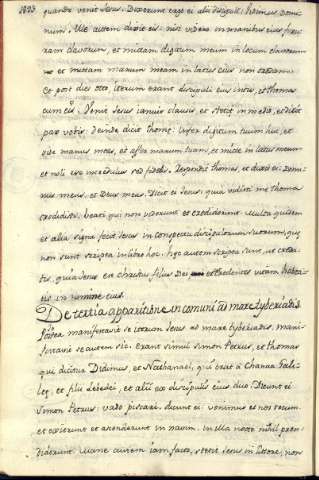 1093
quando venit Jesus. Dixerunt ergo ei alii discipuli: Vidimus Domi-
num. Ille autem dixit eis: nisi videro in manibus eius fixu-
ram clavorum, et mittam digitum meum in locum clavorum
et mittam manum meam in latus eius non credam.
Et post dies octo, iterum erant discipuli eius intus, et thomas
cum eis. Venit Jesus ianuis clausis, et stetit in medio, et dixit
pax vobis. deinde dicit thome: infer digitum tuum huc, et
vide manus meas, et affer manum tuam, et mitte in latus meum
et noli esse incredulus sed fidelis. Respondit thomas, et dixit ei: Domi-
nus meus, et Deus meus. Dicit ei Jesus, quia vidisti me thoma
credidisti, beati qui non viderunt et crediderunt. Multa quidem
et alia signa fecit Jesus in conspectu discipulorum suorum, que
non sunt scripta in libro hoc. Hec autem scripta sunt, ut creda-
tis, quia Jesus est christus filius Dei et credentes vitam habea-
tis in nomine eius.
De tertia apparitione in comuni ad mare tyberiadis
Postea manifestavit se iterum Jesus ad mare tyberiadis, mani-
festavit se autem sic. Erant simul Simon Petrus, et thomas
qui dicitur Didimus, et Nathanael, qui erat a Chanaa Gali-
lee, et filii Zebedei, et alii ex discipulis eius duo. Dicit eis
Simon Petrus, vado piscari. dicunt ei, venimus et nos tecum.
et exierunt et ascenderunt in navim. In illa nocte nihil pren-
diderunt. Mane autem iam facto, stetit Jesus in littore, non